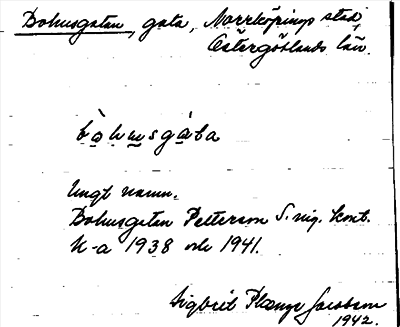 Bohusgatan, gata, Norrköpings stad,
Östergötlands län.
bo̱hu̱sga̱ta
Ungt namn.
Bohusgatan Petterson S. nig. kont.
K-a 1938 och 1941.
Sigbrit Plænge Jacobson
1942.